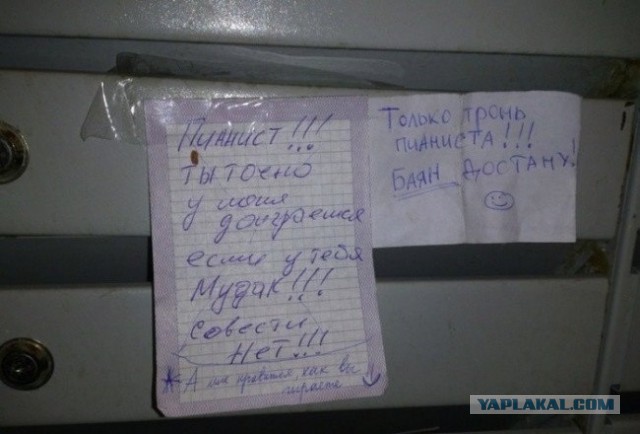 Пианист!!!
ты точно
у меня
доиграешся
если у тебя
Мудак!!!
совести
Нет!!!
А мне нравится, как вы
играете
Только тронь
пианиста!!!
Баян достану!
YAPLAKAL.COM